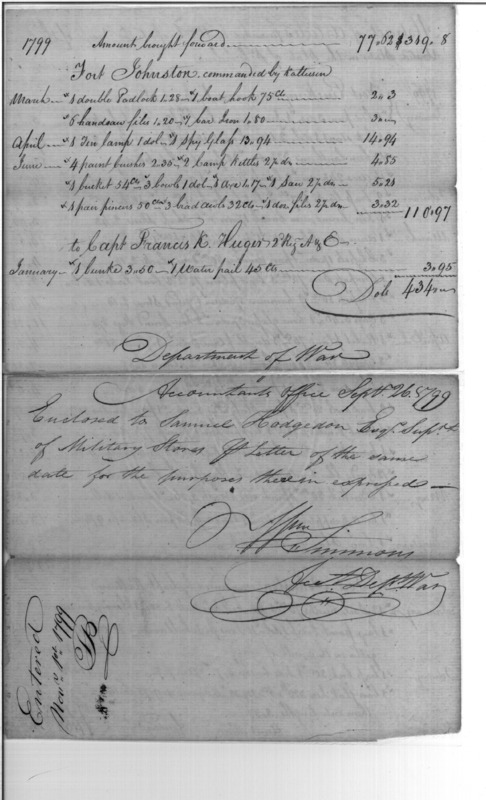 1799 Amount brought forward 77.62 $319.8
Fort Johnston commanded by Kalteisen
March "1 double Padlock 1.28 "1 boat hook 75 Cts 2.3
"6 handsaw files 1.20 "2 bar Iron 1.80 3
April "1 Tin lamp 1 dol "1 Spy Glass 13.94 14.94
June "4 paint brushes 2.35 "2 Camp Kettles 2½ drs 4.85
"1 bucket 54 Cts "3 bowls 1 dol "1 Axe 1.17 "1 Saw 2½ drs 5.21
"1 pair pincers 50 Cts "3 brad awls 32 Cts "1 doz files 2½ drs 3.32 110.97
to Capt Francis K. Huger 2d Reg A & E
January "1 bunk 3.50 "1 Water pail 45 Cts 3.95
Dols 434
Department of War
Accountants Office Septr 26. 1799
Enclosed to Samuel Hodgedon Esqr Supt
of Military Stores Pr Letter of the same
date for the purposes therein expressed
Wm Simmons
Acct Dept War
Entered
Novr 1st 1799